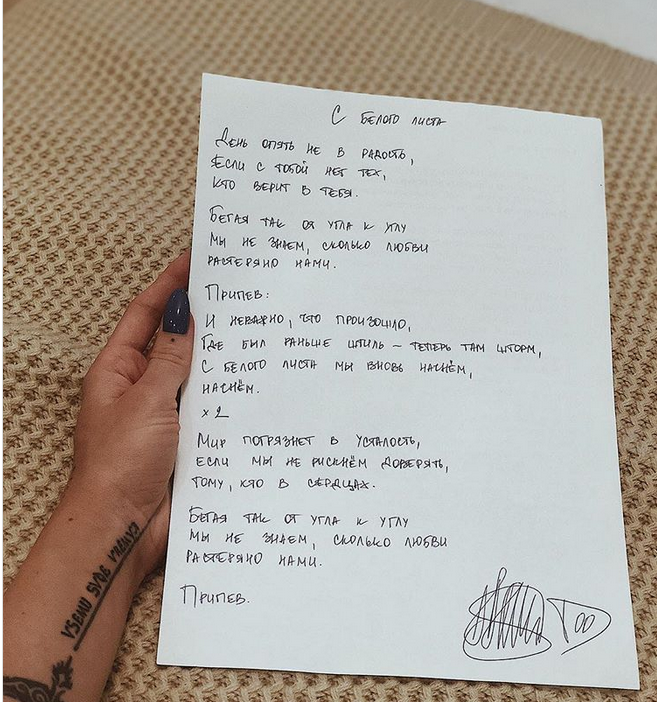 С БЕЛОГО ЛИСТА
ДЕНЬ ОПЯТЬ НЕ В РАДОСТЬ,
ЕСЛИ С ТОБОЙ НЕТ ТЕХ,
КТО ВЕРИТ В ТЕБЯ.
БЕГАЯ ТАК ОТ УГЛА К УГЛУ
МЫ НЕ ЗНАЕМ, СКОЛЬКО ЛЮБВИ
РАСТЕРЯНО НАМИ.
ПРИПЕВ:
И НЕВАЖНО, ЧТО ПРОИЗОШЛО,
ГДЕ БЫЛ РАНЬШЕ ШТИЛЬ – ТЕПЕРЬ ТАМ ШТОРМ,
С БЕЛОГО ЛИСТА МЫ ВНОВЬ НАЧНЁМ,
НАЧНЁМ.
x 2
МИР ПОГРЯЗНЕТ В УСТАЛОСТЬ,
ЕСЛИ МЫ НЕ РИСКНЁМ ДОВЕРЯТЬ,
ТОМУ, КТО В СЕРДЦАХ.
БЕГАЯ ТАК ОТ УГЛА К УГЛУ
МЫ НЕ ЗНАЕМ, СКОЛЬКО ЛЮБВИ
РАСТЕРЯНО НАМИ.
ПРИПЕВ.
VSEMU SVOE